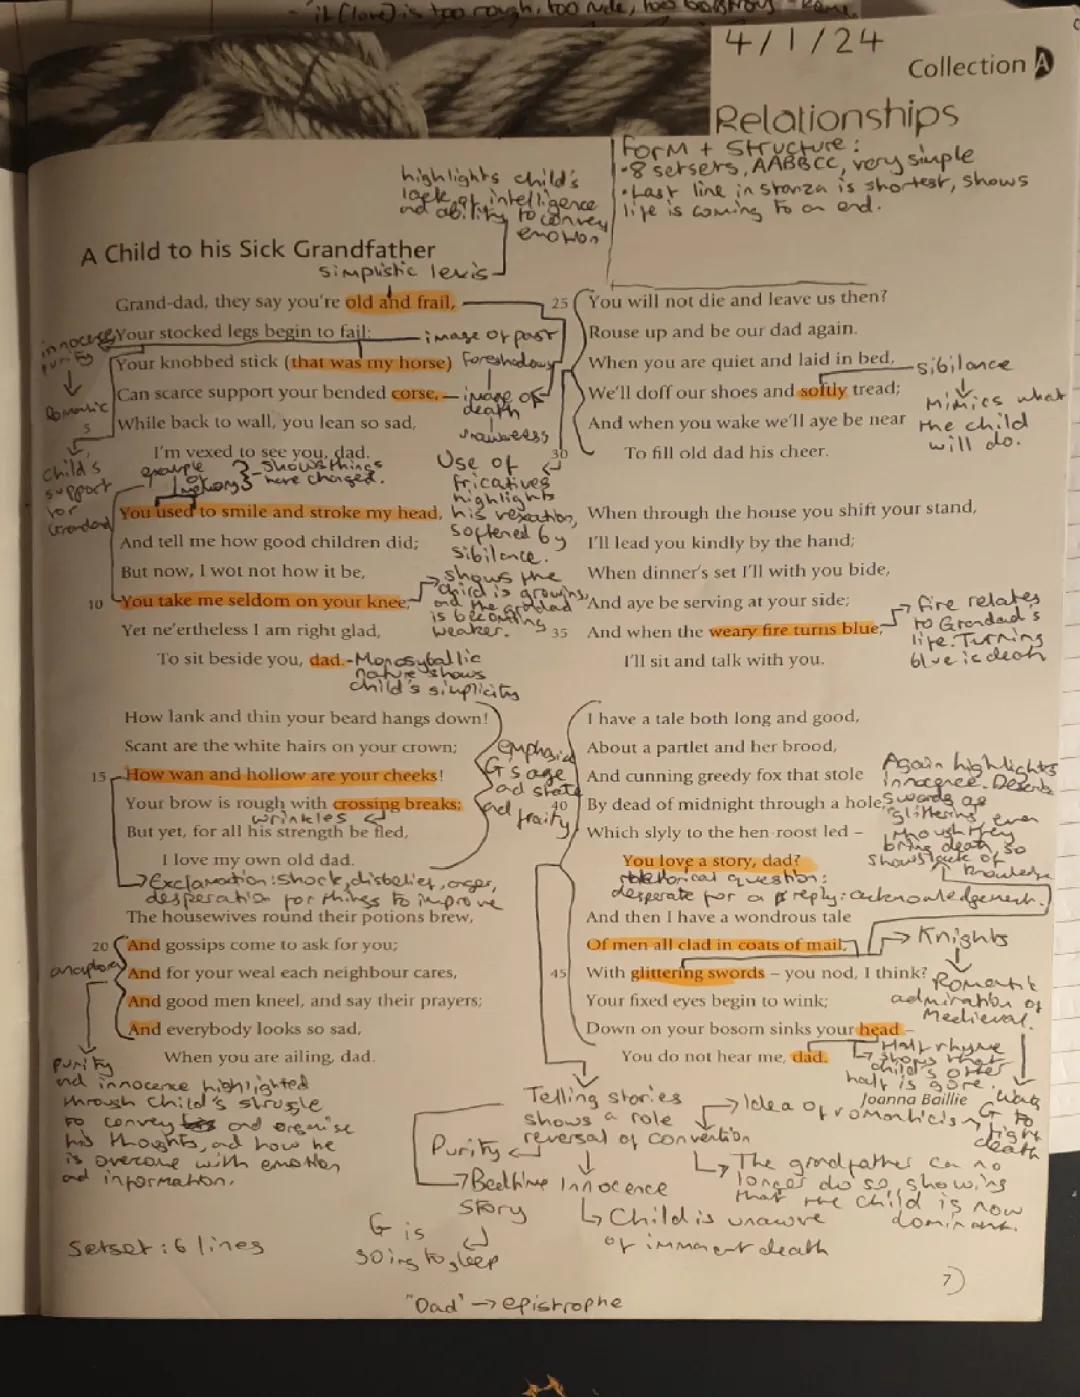 "it (love) is too rough, too rude, too boistrous"
4/1/24
Collection A
Relationships
Form + Structure:
• 8 setsets, AABBCC, very simple
• Last line in stanza is shortest, shows
life is coming to an end.
highlights child's
lack of intelligence
and ability to convey
emotion
A Child to his Sick Grandfather
simplistic lexis
Grand-dad, they say you're old and frail,
Your stocked legs begin to fail:
Your knobbed stick (that was my horse)
Can scarce support your bended corse,
While back to wall, you lean so sad,
I'm vexed to see you, dad.
innocence
purity
Romantic
s
Child's
support
for
Grandad
image of past
foreshadows
image of
death
unawareness
example
of
shows things
have changed.
Use of
fricatives
highlights
his vexation,
softened by
sibilance.
You used to smile and stroke my head,
And tell me how good children did;
But now, I wot not how it be,
10 You take me seldom on your knee,
Yet ne'ertheless I am right glad,
To sit beside you, dad.
shows the
child is growing,
and the grandad
is becoming
weaker.
- Monosyballic
nature shows
child's simplicity
How lank and thin your beard hangs down!
Scant are the white hairs on your crown;
15 How wan and hollow are your cheeks!
Your brow is rough with crossing breaks;
wrinkles
But yet, for all his strength be fled,
I love my own old dad.
emphasise
G's age
and state
and fraity
Exclamation: shock, disbelief, anger,
desperation for things to improve
The housewives round their potions brew,
20 And gossips come to ask for you;
And for your weal each neighbour cares,
And good men kneel, and say their prayers;
And everybody looks so sad,
When you are ailing, dad.
anaphora
Purity
and innocence highlighted
through child's struggle
to convey and organise
his thoughts, and how he
is overcome with emotion
and information.
Setset: 6 lines
25 You will not die and leave us then?
Rouse up and be our dad again.
When you are quiet and laid in bed,
We'll doff our shoes and softly tread;
And when you wake we'll aye be near
30 To fill old dad his cheer.
sibilance
Mimics what
the child
will do.
When through the house you shift your stand,
I'll lead you kindly by the hand;
When dinner's set I'll with you bide,
And aye be serving at your side;
35 And when the weary fire turns blue,
I'll sit and talk with you.
fire relates
to Grandad's
life. Turning
blue is death
I have a tale both long and good,
About a partlet and her brood,
And cunning greedy fox that stole
40 By dead of midnight through a hole,
Which slyly to the hen-roost led –
You love a story, dad?
rhetorical question:
desperate for a reply: acknowledgement.
Again highlights
innocence. Describes
swords as
"glittering, even
though they
bring death, so
shows lack of
knowledge
And then I have a wondrous tale
Of men all clad in coats of mail,
45 With glittering swords – you nod, I think?
Your fixed eyes begin to wink;
Down on your bosom sinks your head –
You do not hear me, dad.
Joanna Baillie
Knights
Romantic
admiration of
Medieval.
Half rhyme
shows that
child's other
half is gone.
Wants
G to
fight
death
Telling stories
shows a role
reversal of convention
Idea of romanticism
The grandfather can no
longer do so, showing
that the child is now
dominant.
Purity
Bedtime
story
Innocence
Child is unaware
of immanent death
G is
going to sleep
"Dad" → epistrophe
7